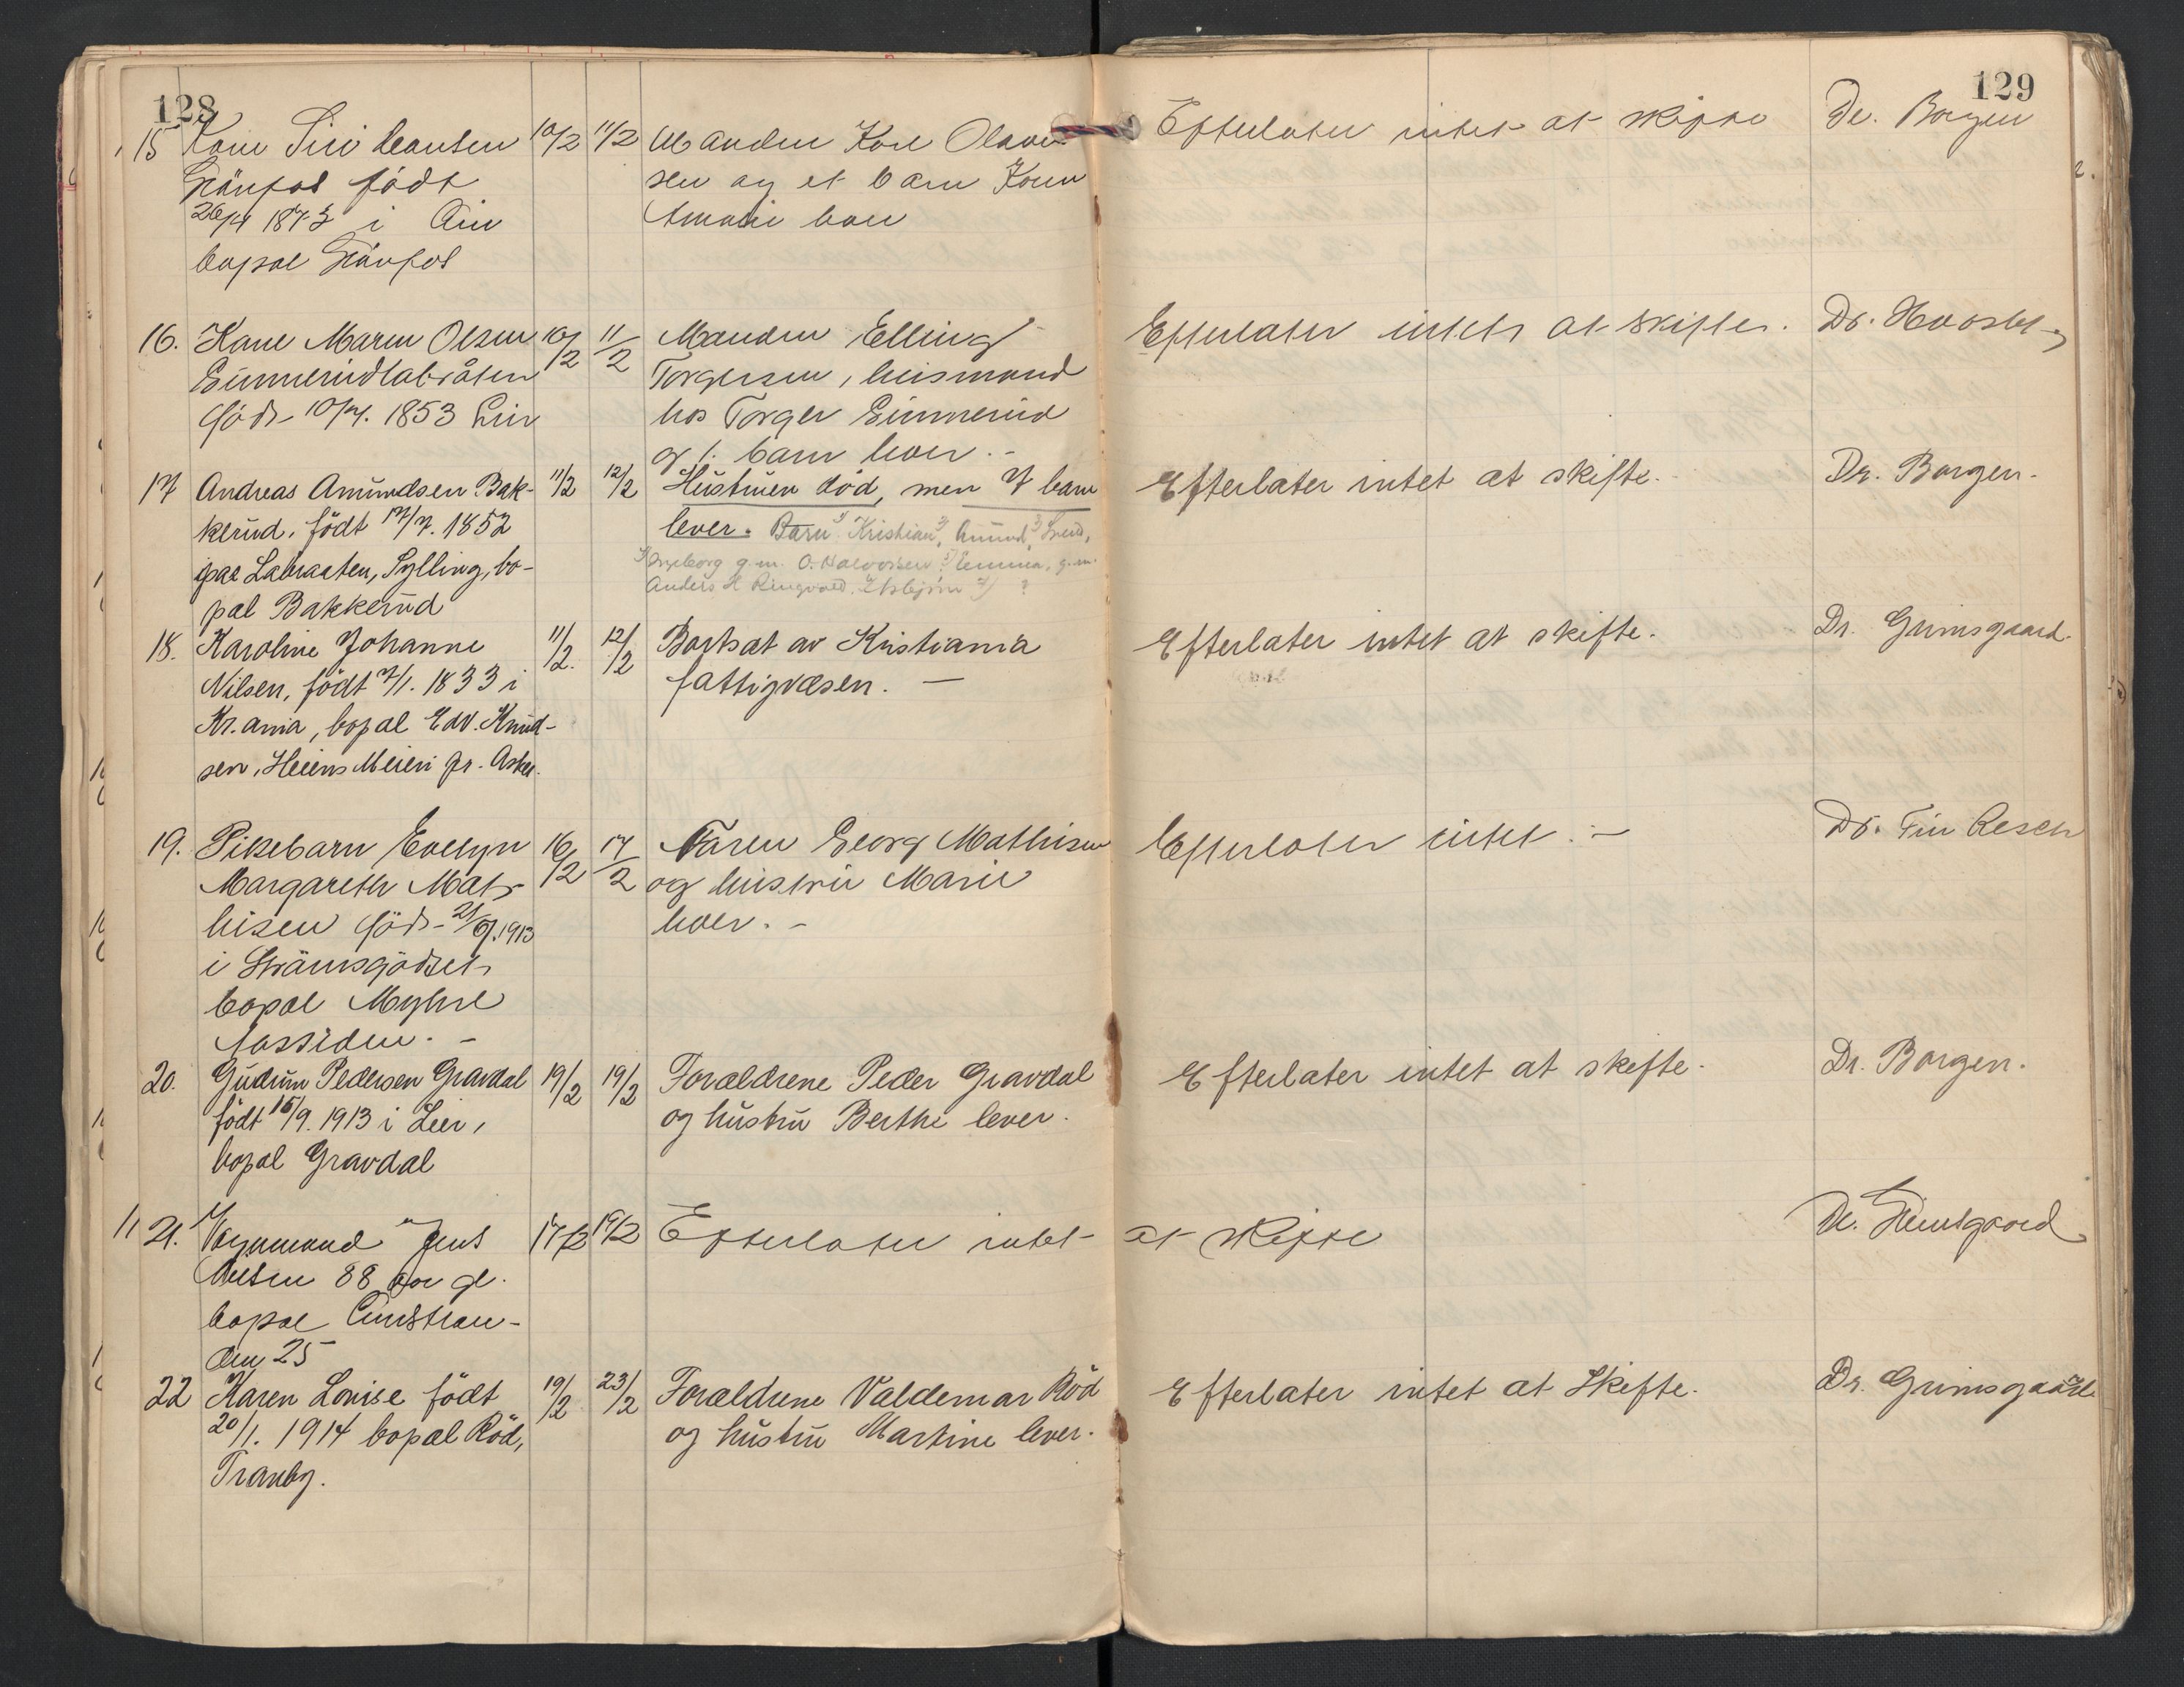 128
129
15 Kone Siri
født
26/4 1873 i
bopæl
10/2 11/2
Manden Olaves-
sen og et barn
Efterlater intet at skifte
Dr. Borgen
16. Kone Maren Olsen
født 10/4. 1853 Lier
10/2 11/2
Manden Elling
Torgersen, husmand
hos Torger Gunnerud
og 1. barn lever. -
Efterlater intet at skifte.
17 Andreas Amundsen Bak-
kerud, født 17/7. 1852
paa Labraaten, Sylling, bo-
pæl Bakkerud
11/2 12/2
Hustruen død, men 7 barn
lever. Barn 1) Kristian, 2) Amund, 3)
4) Ingeborg g.m. O. Halvorsen 5) Emma, g.m.
Anders Ringvold. 7) ?
Efterlater intet at skifte.
Dr. Borgen.
18. Karoline Johanne
Nilsen, født 7/1. 1833 i
Kr.ania, bopæl Edv. Knud-
sen, Heiens Meieri pr. Asker.
11/2. 12/2
Bortsat av Kristiania
fattigvæsen. -
Efterlater intet at skifte.
Dr. Grimsgaard.
19. Pikebarn Evelyn
Margareth Mat-
hisen født 21/9. 1913
i Strömsgodset
bopæl Myhre
Aassiden. -
16/2 17/2
Faren Georg Mathisen
og hustru Marie
lever. -
Efterlater intet. -
Dr. Fin
20. Gudrun Pedersen Gravdal
født 15/9. 1913 i Lier,
bopæl Gravdal
19/2 19/2
Forældrene Peder Gravdal
og hustru Berthe lever.
Efterlater intet at skifte.
Dr. Borgen.
21. Jens
88 aar gl.
bopæl
25
17/2 19/2
Efterlater intet at skifte
Dr. Grimsgaard
22 Karen Louise født
20/1. 1914 bopæl Röd,
Tranby.
19/2 23/2
Forældrene Valdemar Röd
og hustru Martine lever.
Efterlater intet at Skifte.
Dr. Grimsgaard.